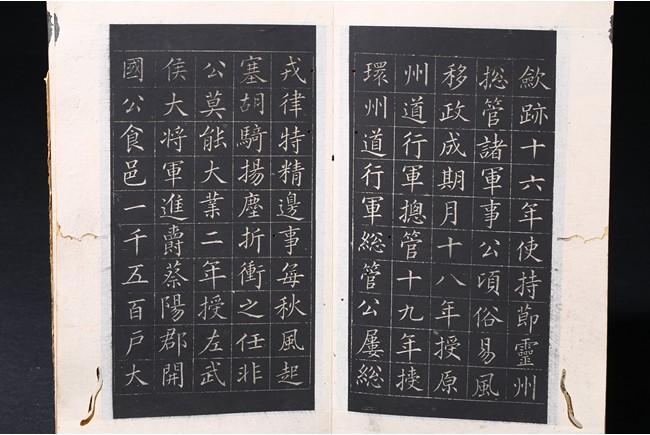 歛跡十六年使持節靈州
捴管諸軍事公頃俗易風
移政成期月十八年授原
州道行軍摠管十九年授
環州道行軍総管公屢総
戎律特精邊事每秋風起
塞胡騎揚塵折衝之任非
公莫能大業二年授左武
侯大將軍進爵蔡陽郡開
國公食邑一千五百戶大